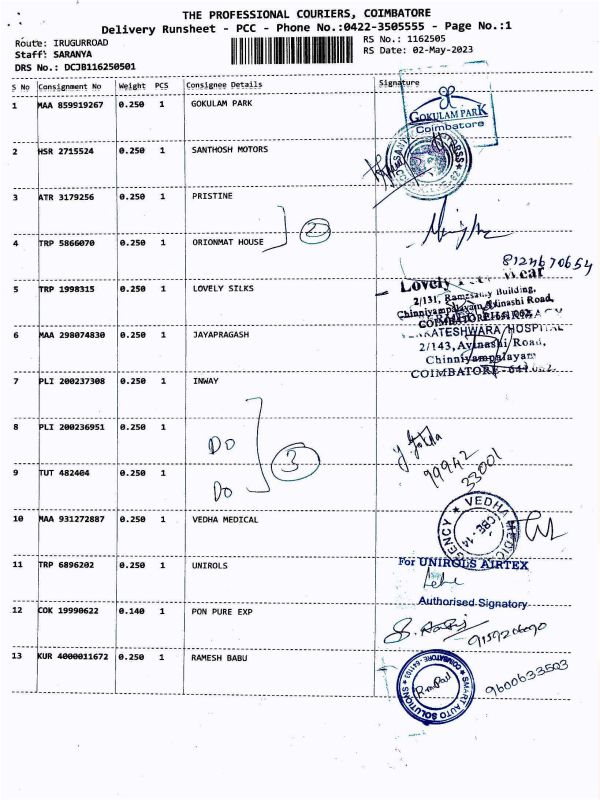 THE PROFESSIONAL COURIERS, COIMBATORE
Delivery Runsheet - PCC - Phone No.:0422-3505555 - Page No.:1
Route: IRUGURROAD
RS No.: 1162505
Staff: SARANYA
RS Date: 02-May-2023
DRS No.: DCJB116250501
S No Consignment No Weight PCS Consignee Details Signature
1 MAA 859919267 0.250 1 GOKULAM PARK
GOKULAM PARK
Coimbatore
2 HSR 2715524 0.250 1 SANTHOSH MOTORS
3 ATR 3179256 0.250 1 PRISTINE
2
4 TRP 5866070 0.250 1 ORIONMAT HOUSE
8124670654
5 TRP 1998315 0.250 1 LOVELY SILKS
Lovely
2/131, Ramasamy Building,
Chinniyampalayam, Avinashi Road,
COIMBATORE
6 MAA 298074830 0.250 1 JAYAPRAGASH
HOSPITAL
2/143, Avinashi Road,
Chinniyampalayam
COIMBATORE
7 PLI 200237308 0.250 1 INWAY
8 PLI 200236951 0.250 1
DO
3
99942
33001
9 TUT 482404 0.250 1
DO
10 MAA 931272887 0.250 1 VEDHA MEDICAL
VEDHA MEDICAL AGENCY
CBE - 14
11 TRP 6896202 0.250 1 UNIROLS
For UNIROLS AIRTEX
Authorised Signatory
12 COK 19990622 0.140 1 PON PURE EXP
13 KUR 4000011672 0.250 1 RAMESH BABU
SMART AUTO SOLUTIONS
COIMBATORE-641103
9600633503